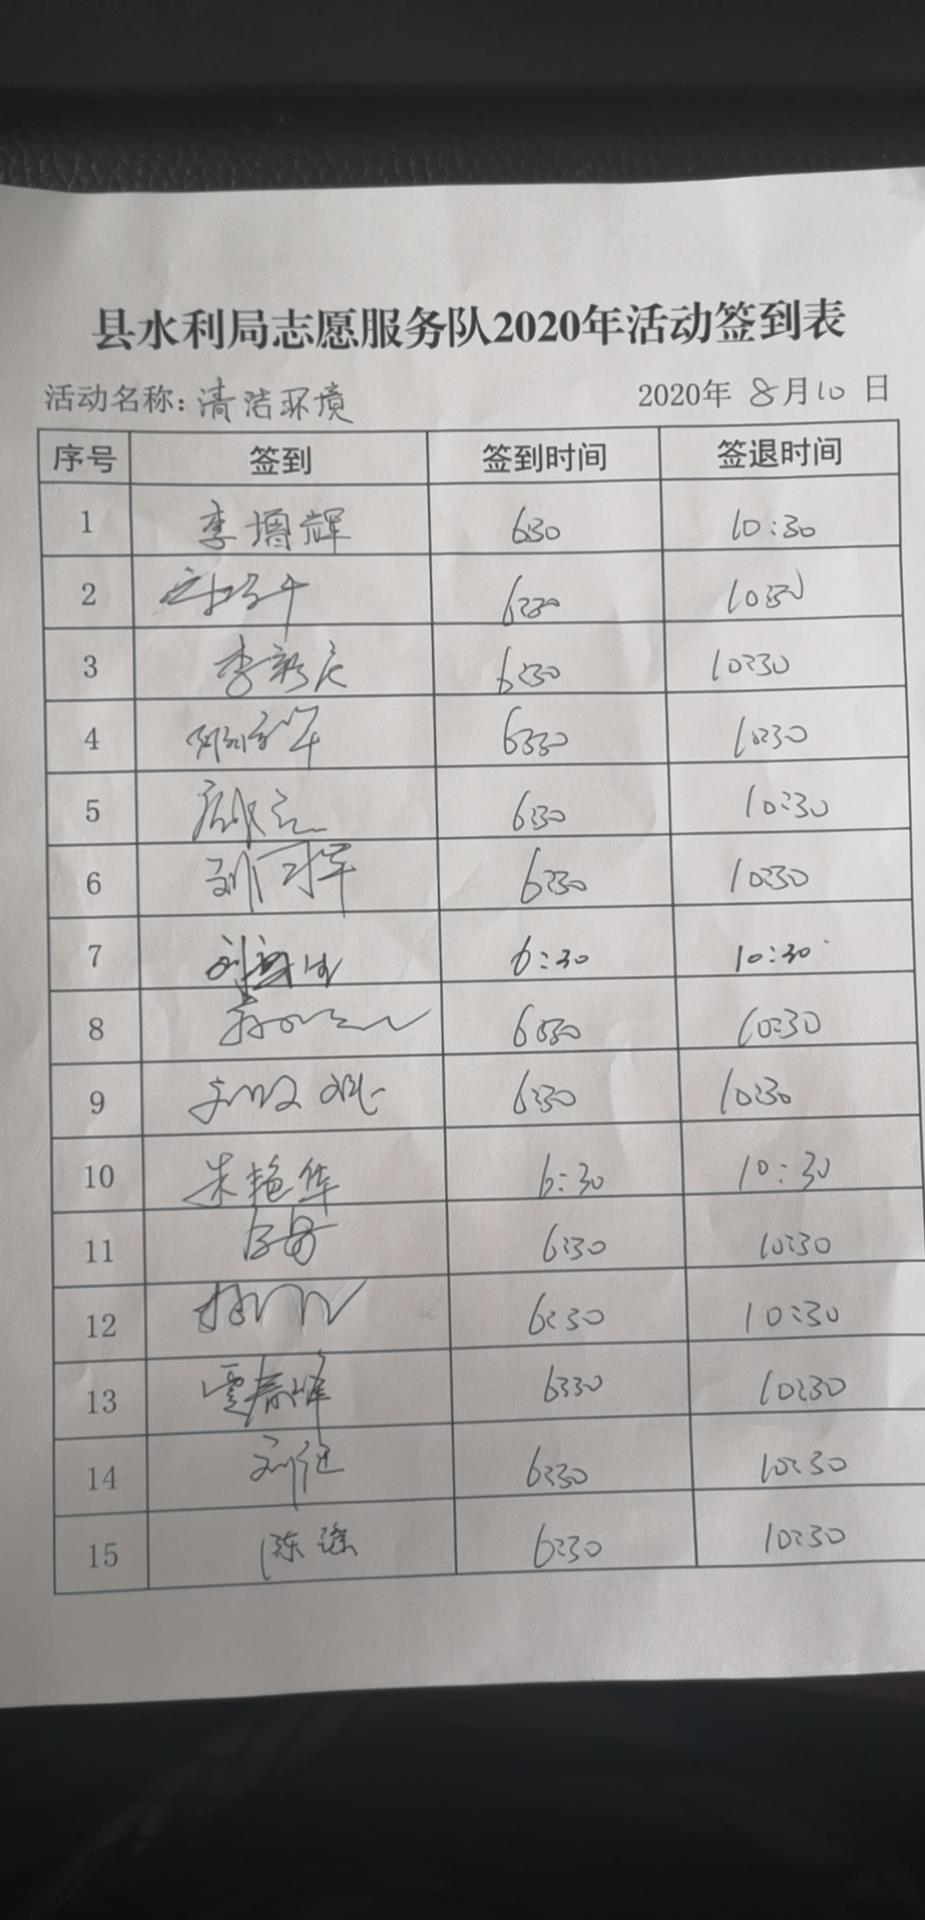 县水利局志愿服务队2020年活动签到表
活动名称:清洁环境 2020年 8月10日
序号 签到 签到时间 签退时间
1 李增辉 6:30 10:30
2 6:30 10:30
3 李新辰 6:30 10:30
4 6:30 10:30
5 6:30 10:30
6 6:30 10:30
7 6:30 10:30
8 6:30 10:30
9 6:30 10:30
10 朱艳华 6:30 10:30
11 6:30 10:30
12 6:30 10:30
13 6:30 10:30
14 6:30 10:30
15 陈瑶 6:30 10:30